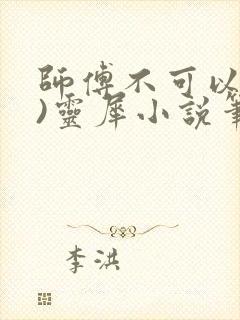 師傅不可以
)靈犀小說筆
李洪